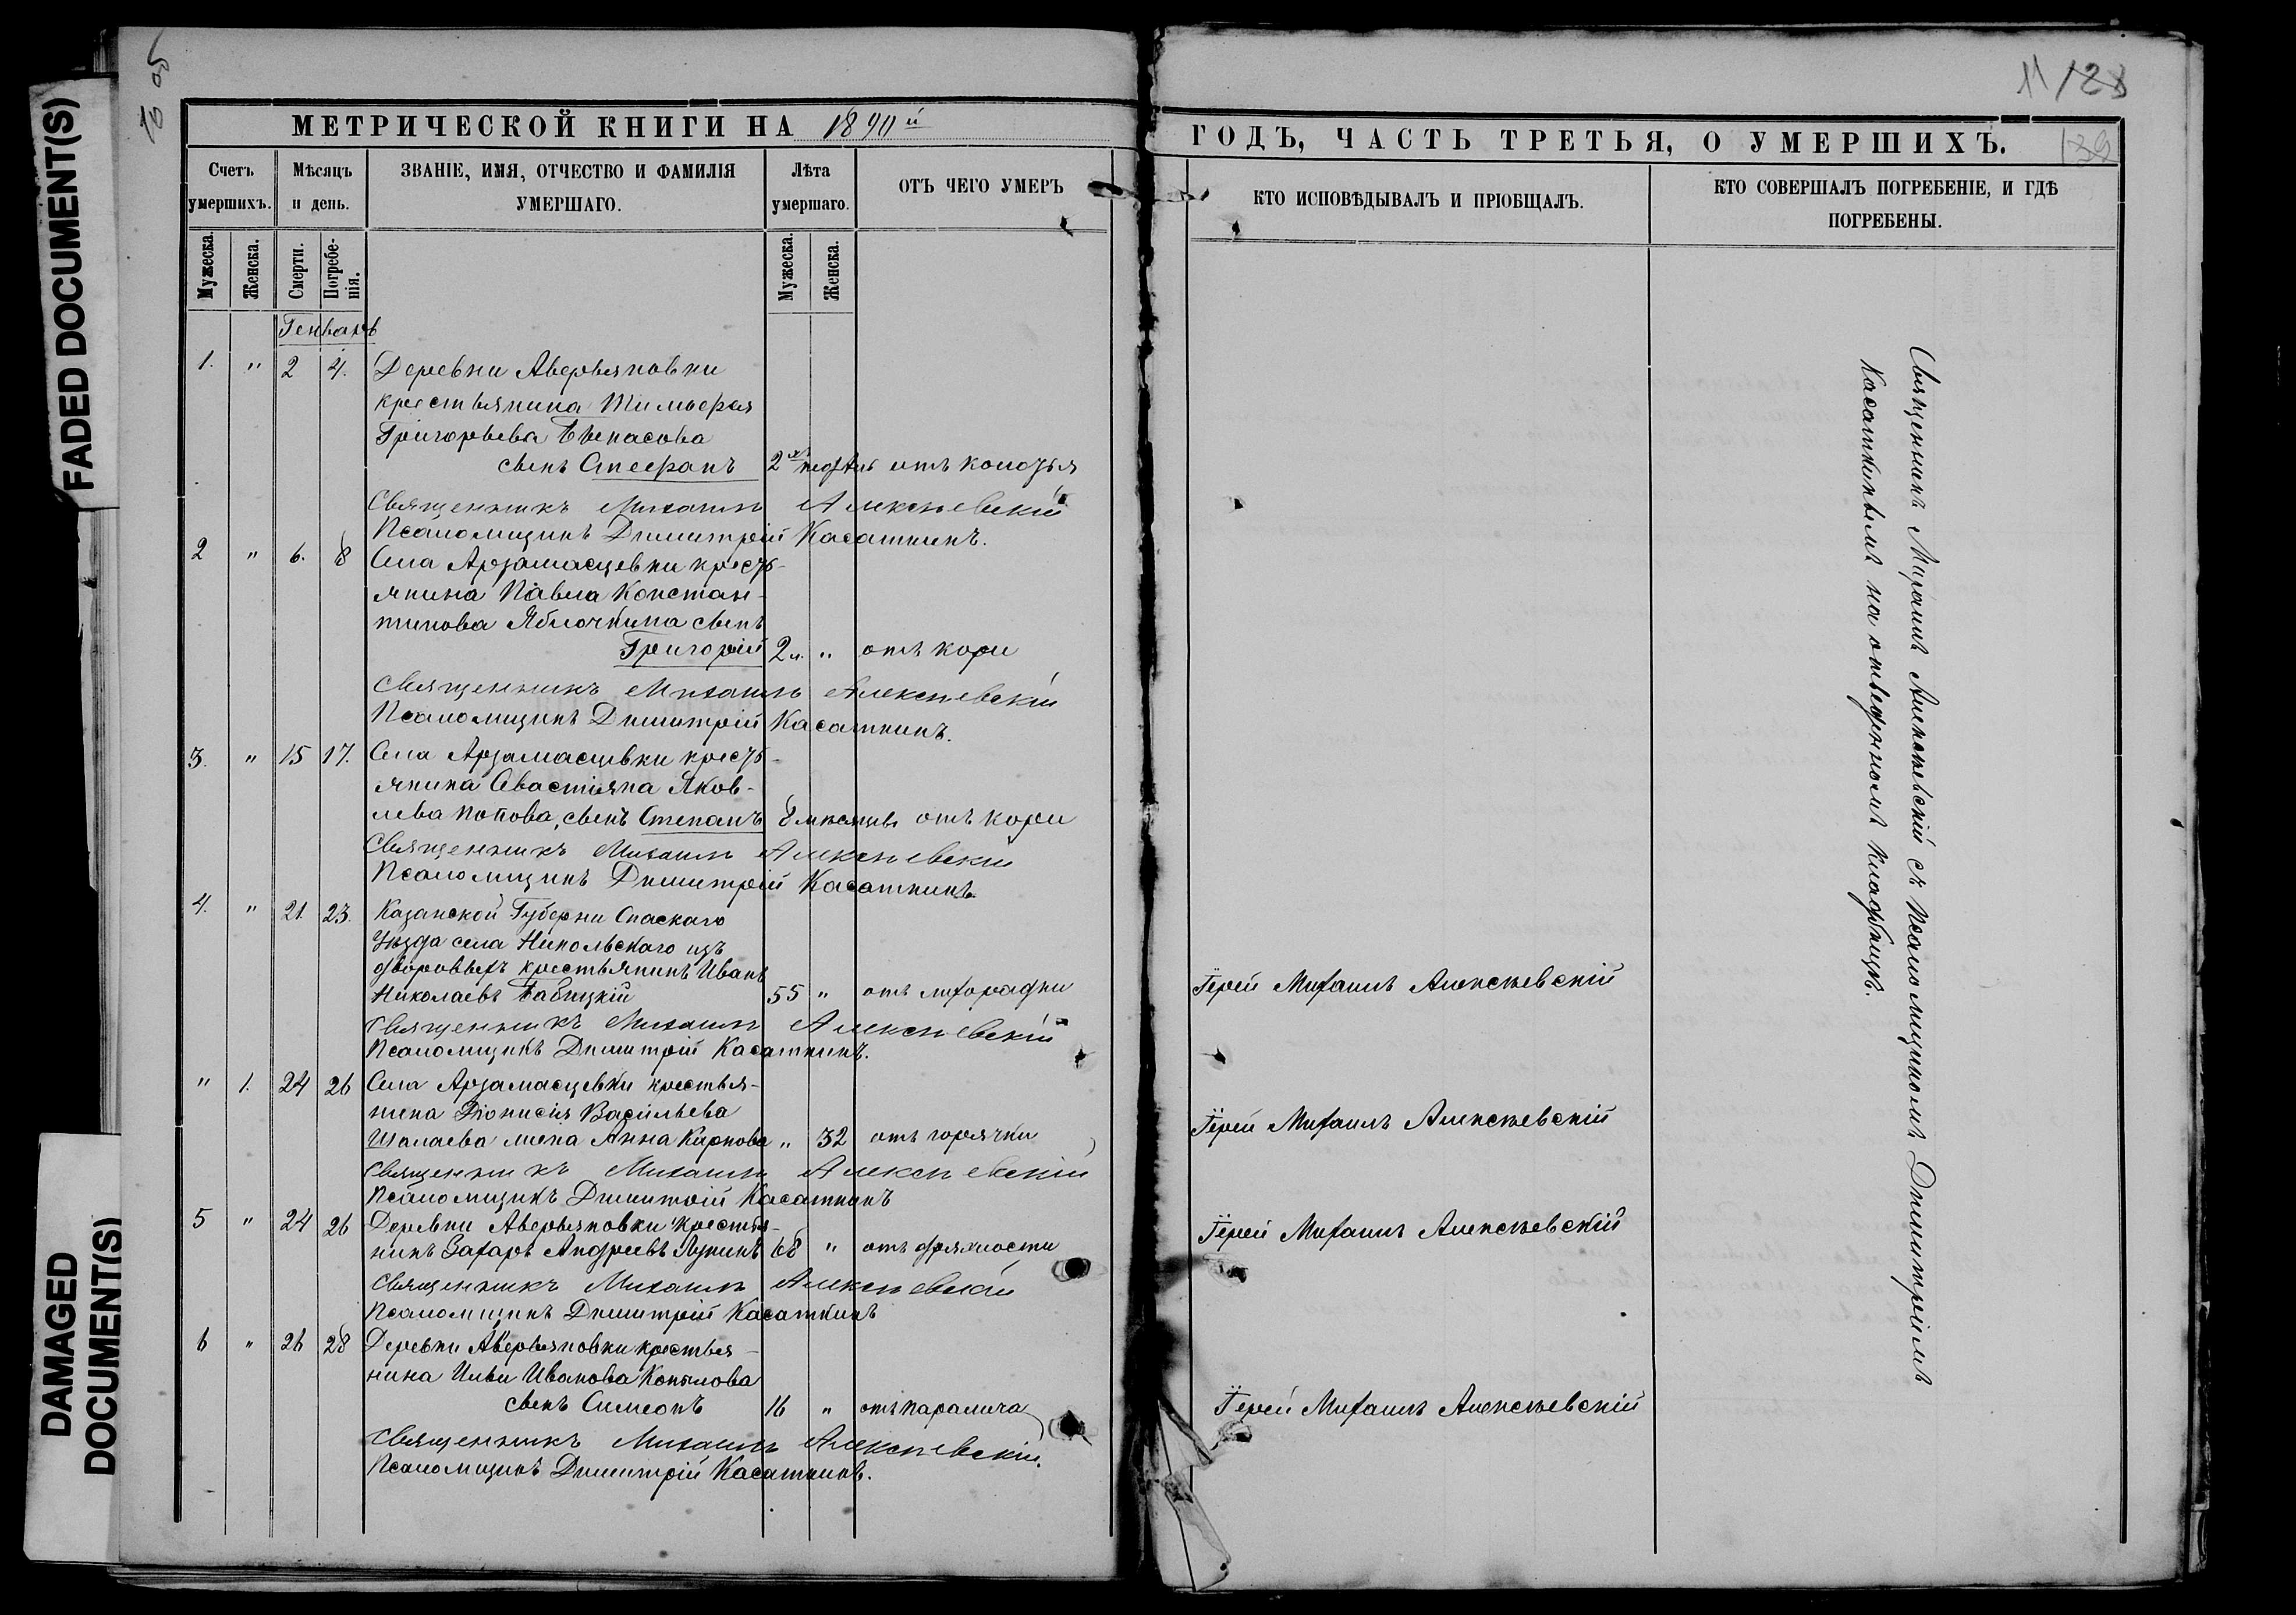 FADED DOCUMENT(S)
DAMAGED
DOCUMENT(S)
11 128
МЕТРИЧЕСКОЙ КНИГИ НА 1890й
ГОДЪ, ЧАСТЬ ТРЕТЬЯ, О УМЕРШИХЪ.
Счетъ
умершихъ.
Мѣсяцъ
и день.
ЗВАНІЕ, ИМЯ, ОТЧЕСТВО И ФАМИЛІЯ
УМЕРШАГО.
Лѣта
умершаго.
ОТЪ ЧЕГО УМЕРЪ
КТО ИСПОВѢДЫВАЛЪ И ПРІОБЩАЛЪ.
КТО СОВЕРШАЛЪ ПОГРЕБЕНІЕ, И ГДѢ
ПОГРЕБЕНЫ.
Мужеска.
Женска.
Смерти.
Погребе-
нія.
Мужеска.
Женска.
Генварь
1. " 2 4. Деревни Аверьяновки
крестьянина Тимофея
Григорьева
сынъ Стефанъ 2хъ недѣль отъ
Священникъ Михаилъ Алексѣевскій
Псаломщикъ Димитрій Касаткинъ.
2 " 6. 8 Села Арзамасцевки кресть-
янина Павла Констан-
тинова Яблочкина сынъ
Григорій 2 л. " отъ кори
Священникъ Михаилъ Алексѣевскій
Псаломщикъ Димитрій Касаткинъ.
3. " 15 17. Села Арзамасцевки кресть-
янина Севастіяна Яков-
лева Попова, сынъ Степанъ 8 мѣсяцевъ отъ кори
Священникъ Михаилъ Алексѣевскій
Псаломщикъ Димитрій Касаткинъ.
4. " 21. 23. Казанской Губерни Спаскаго
Уѣзда села Никольскаго изъ
дворовыхъ крестьянинъ Иванъ
Николаевъ 55 " отъ лихорадки
Іерей Михаилъ Алексѣевскій
Священникъ Михаилъ Алексѣевскій
Псаломщикъ Димитрій Касаткинъ.
" 1. 24 26 Села Арзамасцевки крестья-
нина Діонисія Васильева
Шалаева жена Анна Карпова " 32 отъ горячки
Іерей Михаилъ Алексѣевскій
Священникъ Михаилъ Алексѣевскій
Псаломщикъ Димитрій Касаткинъ
5 " 24 26 Деревни Аверьяновки крестья-
нинъ Захаръ Андреевъ Лунинъ 68 " отъ дряхлости
Іерей Михаилъ Алексѣевскій
Священникъ Михаилъ Алексѣевскій
Псаломщикъ Димитрій Касаткинъ
6 " 26 28 Деревни Аверьяновки крестья-
нина Ильи Иванова Копылова
сынъ Симеонъ 16 " отъ паралича
Іерей Михаилъ Алексѣевскій
Священникъ Михаилъ Алексѣевскій.
Псаломщикъ Димитрій Касаткинъ.
Священникъ Михаилъ Алексѣевскій съ псаломщикомъ Димитріемъ
Касаткинымъ на отведенномъ кладбищѣ.